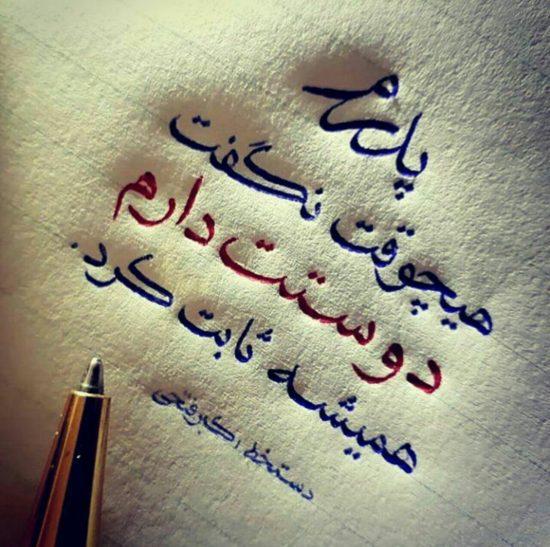 پدرم
هیچوقت نگفت
دوستت دارم
همیشه ثابت کرد.
دستخط اکبر فتحی